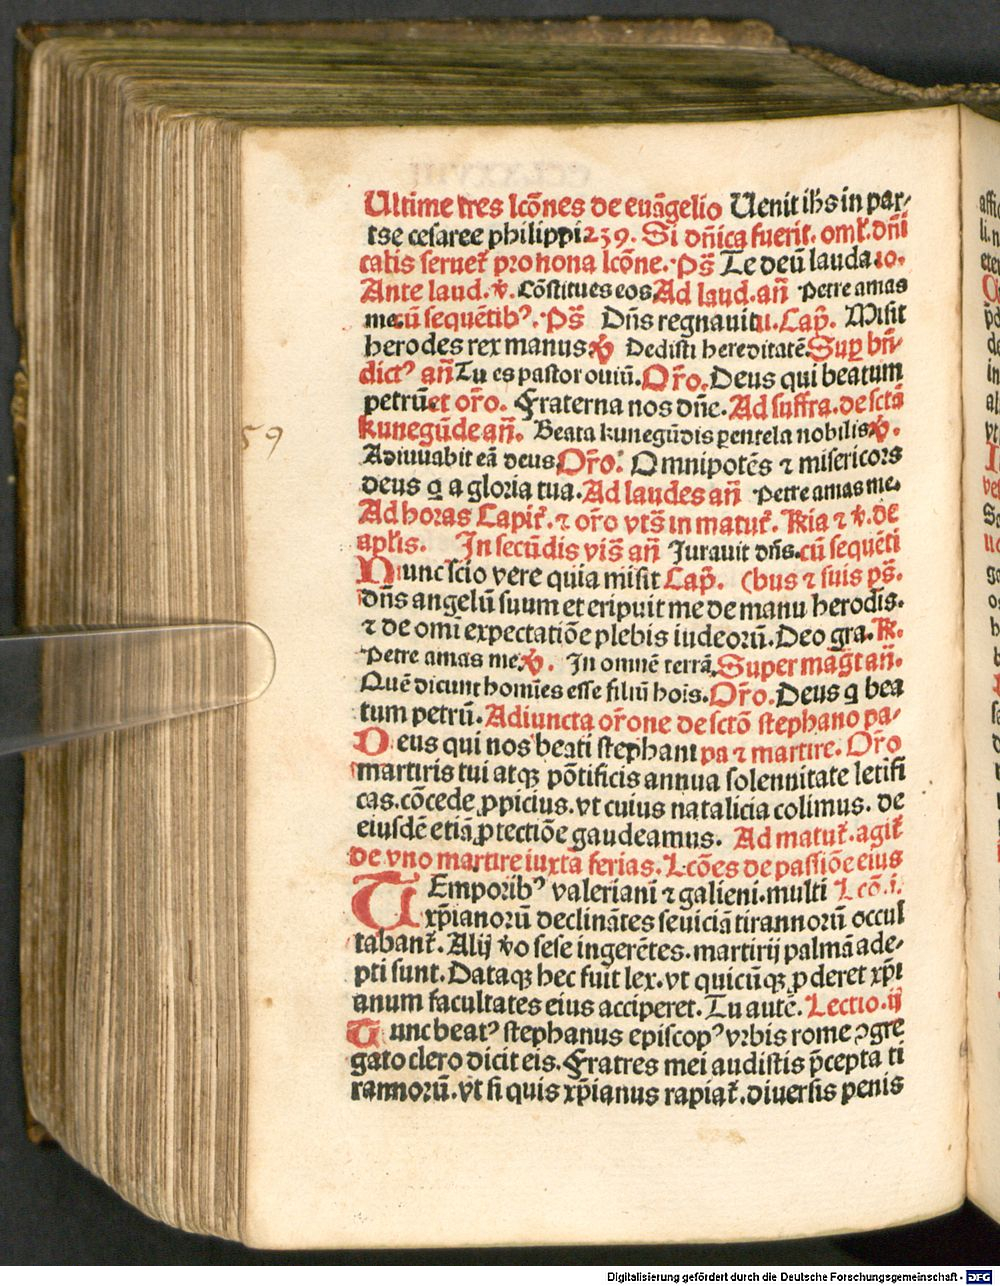 Ultime tres lcões de euãgelio Uenit ihs in par-
tse cesaree philippi 239. Si dñica fuerit. oml̃. dñi
calis seruet̃ pro nona lcõne. Ps̃ Te deũ lauda. 10.
Ante laud. v̾. Cõstitues eos Ad laud. añ Petre amas
me. cũ sequẽtibꝰ. Ps̃ Dñs regnauit u. Cap̃. Misit
herodes rex manus v̾ Dedisti hereditatẽ. Sup bñ-
dictꝰ añ Tu es pastor ouiũ. Or̃o. Deus qui beatum
petrũ. et or̃o. Fraterna nos dñe. Ad suffra. de sctã
kunegũde añ. Beata kunegũdis parentela nobilis v̾.
Adiuuabit eã deus Or̃o. Omnipotẽs ⁊ misericors
deus q̃ a gloria tua. Ad laudes añ Petre amas me.
59
Ad horas Capit̃. ⁊ or̃o vts̃ in matut̃. Kia ⁊ v̾. de
apl̃is. In secũdis vis̃ añ Jurauit dñs. cũ sequẽti
Nunc scio vere quia misit Cap̃. (bus ⁊ suis ps̃.
dñs angelũ suum et eripuit me de manu herodis.
⁊ de omi expectatiõe plebis iudeorũ. Deo gra. R.
Petre amas me. v̾. In omnẽ terrã. Super mag̃t añ.
Quẽ dicunt homies esse filiũ hois. Or̃o. Deus q bea
tum petrũ. Adiuncta or̃one de sctõ stephano pa-
Deus qui nos beati stephani pa ⁊ martire. Or̃o
martiris tui atqꝫ põtificis annua solennitate letifi
cas. cõcede ꝓpicius. vt cuius natalicia colimus. de
eiusdẽ etiã ꝓtectiõe gaudeamus. Ad matut̃. agit̃
de vno martire iuxta ferias. Lcões de passiõe eius
TEmporibꝰ valeriani ⁊ galieni. multi Lcõ. i.
xp̃ianorũ declinãtes seuiciã tirannorũ occul
tabant̃. Alij v̾o sese ingerẽtes. martirij palmã ade-
pti sunt. Dataqꝫ hec fuit lex. vt quicũqꝫ ꝓderet xp̃i
anum facultates eius acciperet. Tu autẽ. Lectio. ij
Tunc beatꝰ stephanus episcopꝰ vrbis rome ꝯgre
gato clero dicit eis. Fratres mei audistis p̃cepta ti
rannorũ. vt si quis xp̃ianus rapiat̃. diuersis penis
Digitalisierung gefördert durch die Deutsche Forschungsgemeinschaft - DFG